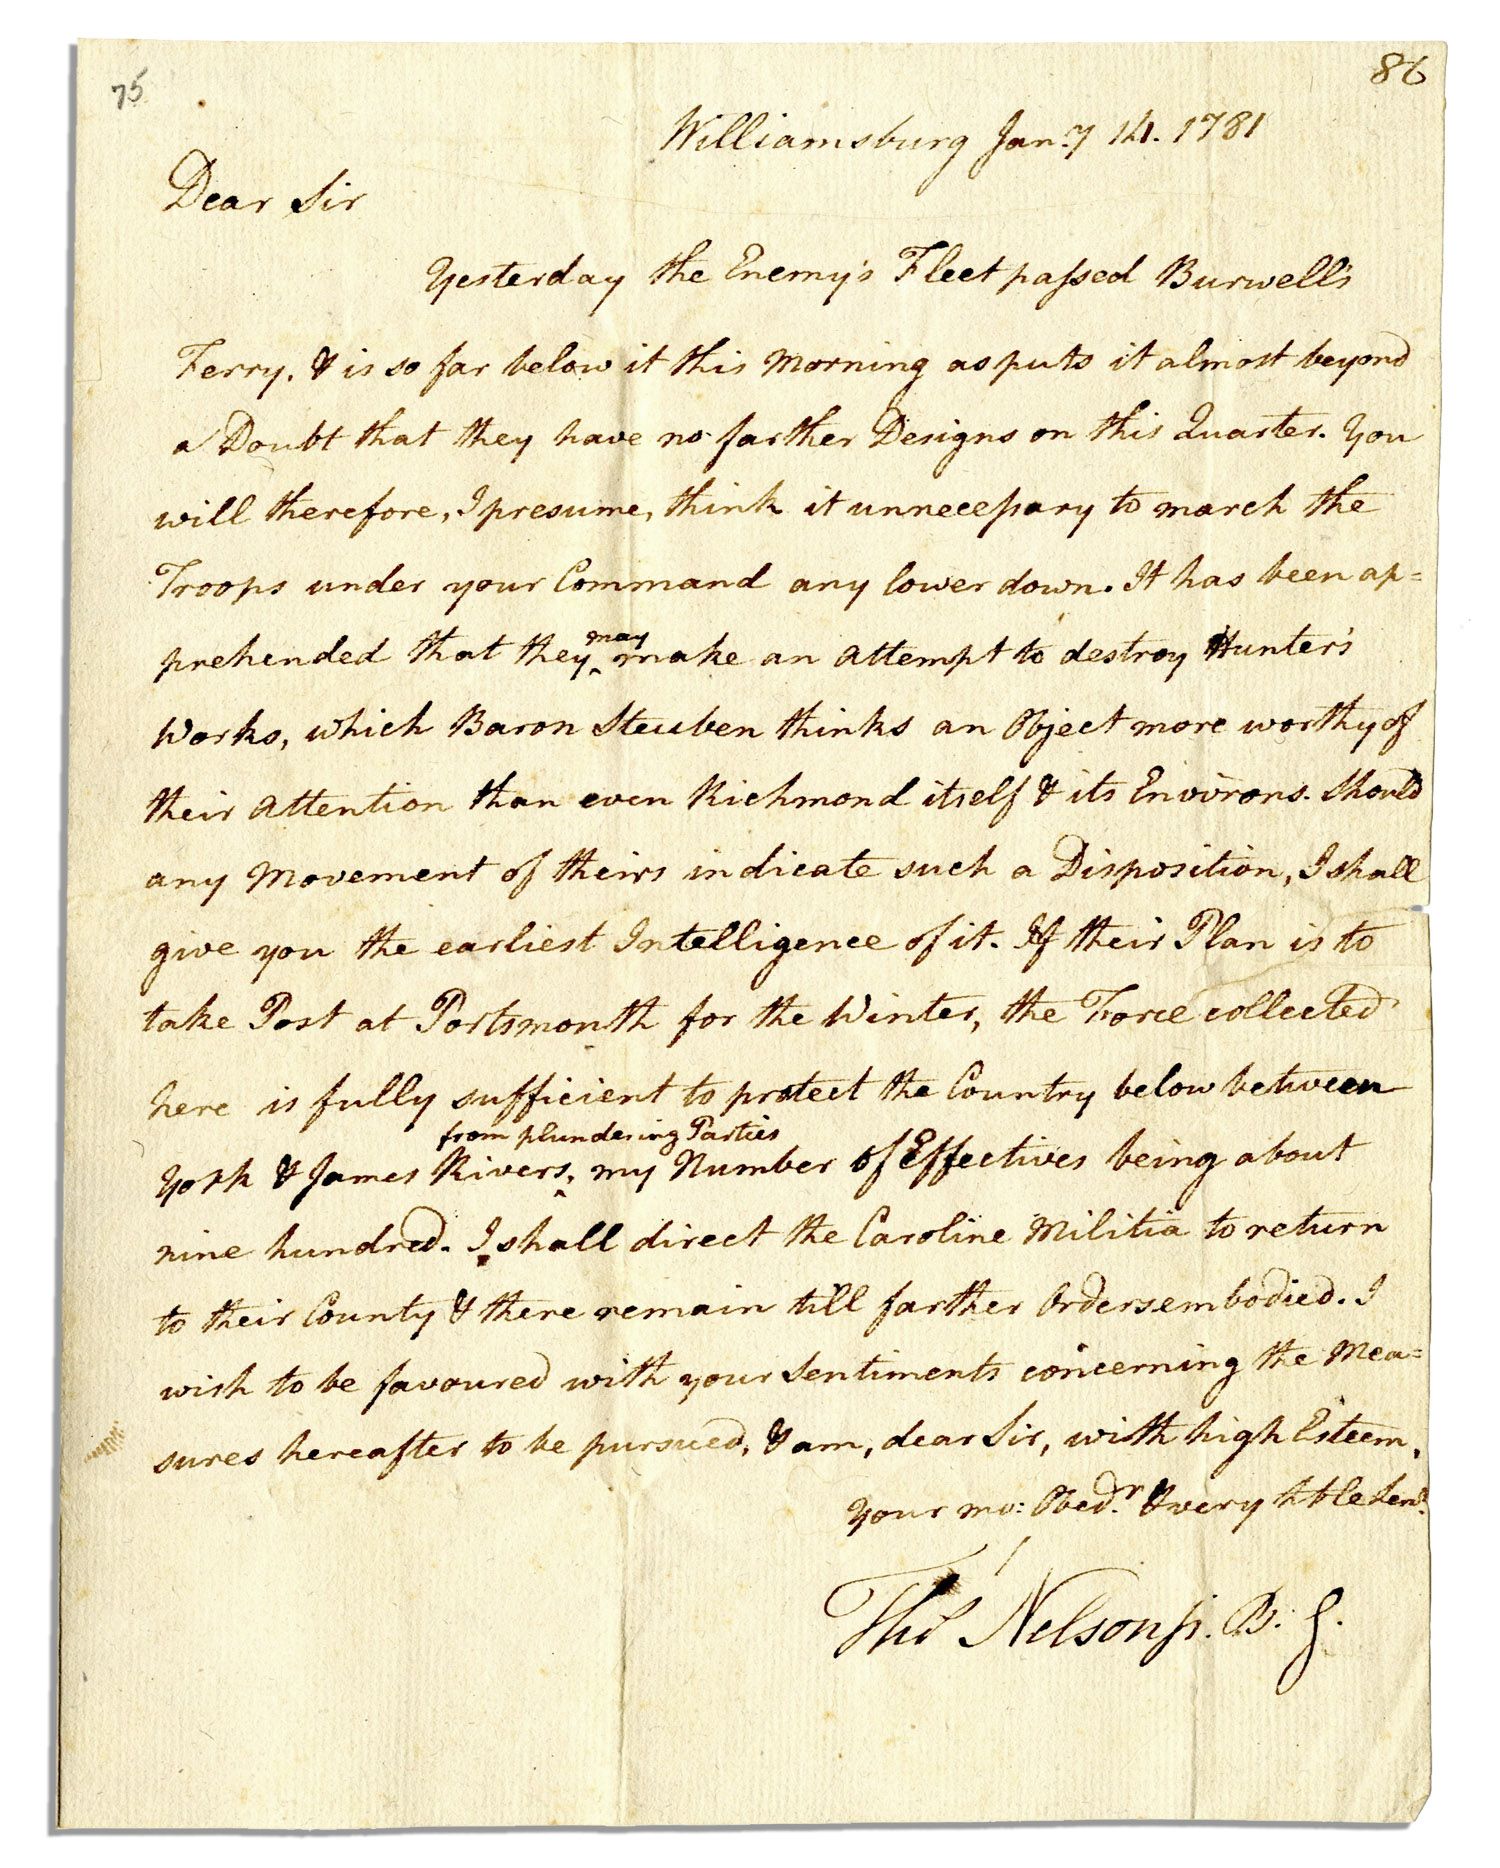 75
86
Williamsburg Jan.y 14. 1781
Dear Sir
Yesterday the Enemy's Fleet passed Burwell's
Ferry, & is so far below it this Morning as puts it almost beyond
a Doubt that they have no farther Designs on this Quarter. You
will therefore, I presume, think it unnecessary to march the
Troops under your Command any lower down. It has been ap=
may
prehended that they ‸ make an Attempt to destroy Hunter's
Works, which Baron Steuben thinks an Object more worthy of
their Attention than even Richmond itself & its Environs. Should
any Movement of theirs indicate such a Disposition, I shall
give you the earliest Intelligence of it. If their Plan is to
take Post at Portsmouth for the Winter, the Force collected
here is fully sufficient to protect the Country below between
from plundering Parties
York & James Rivers ‸, my Number of Effectives being about
nine hundred. I shall direct the Caroline Militia to return
to their County & there remain till farther Orders embodied. I
wish to be favoured with your Sentiments concerning the Mea=
sures hereafter to be pursued, & am, dear Sir, with high Esteem,
Your mo: Obed.r & very hble Serv.t
Tho.s Nelson Jr. B. G.